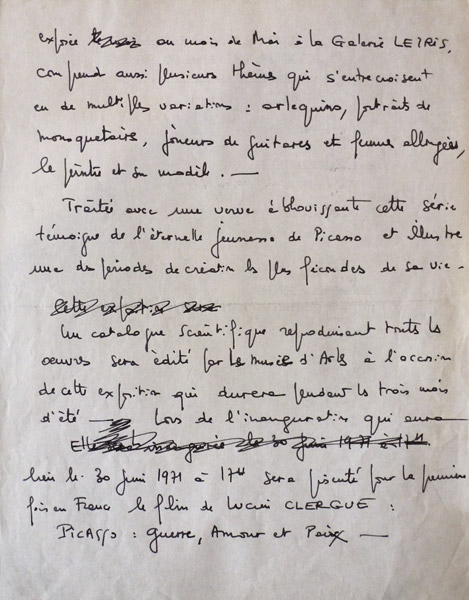 exposée au mois de Mai à la Galerie LEIRIS,
comprend aussi plusieurs thèmes qui s'entrecroisent
en de multiples variations : arlequins, portraits de
mousquetaires, joueurs de guitares et femmes allongées,
le peintre et son modèle. —
Traitée avec une verve éblouissante cette série
témoigne de l'éternelle jeunesse de Picasso et illustre
une des périodes de création les plus fécondes de sa vie -
Cette exposition sera
Un catalogue scientifique reproduisant toutes les
oeuvres sera édité par le musée d'Arles à l'occasion
de cette exposition qui durera pendant les trois mois
d'été — Lors de l'inauguration qui aura
Elle sera inaugurée le 30 Juin 1971 à 17H
lieu le 30 Juin 1971 à 17H sera présenté pour la première
fois en France le film de Lucien CLERGUE :
PICASSO : Guerre, Amour et Paix —